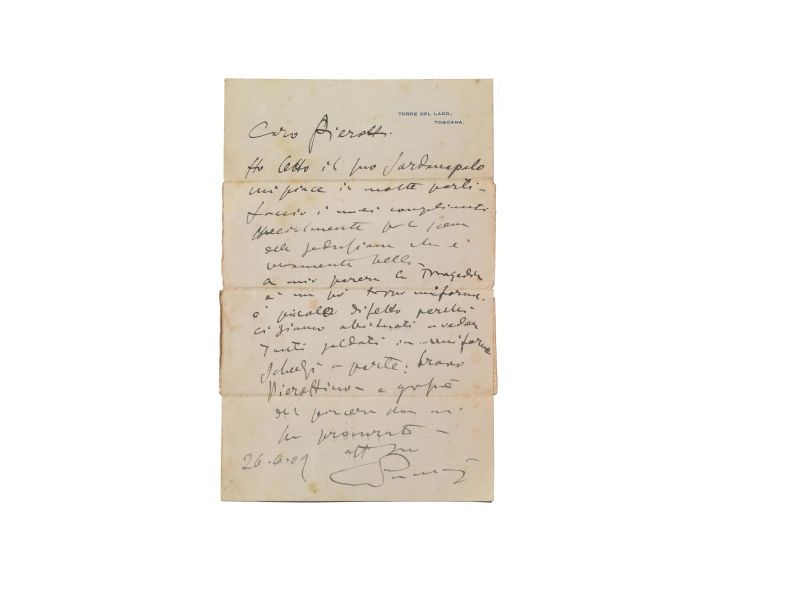 TORRE DEL LAGO,
TOSCANA.
Caro Pierotti.
Ho letto il suo Sardanapalo
mi piace in molte parti –
Faccio i miei complimenti
specialmente per la scena
della seduzione che è
veramente bella –
a mio parere la Tragedia
è un po' troppo uniforme.
è piccolo difetto perchè
ci siamo abituati a veder
tanti soldati in uniforme
Scherzi a parte: bravo
Pierottino – e grazie
del piacere che mi
ha procurato –
aff suo
26.6.09